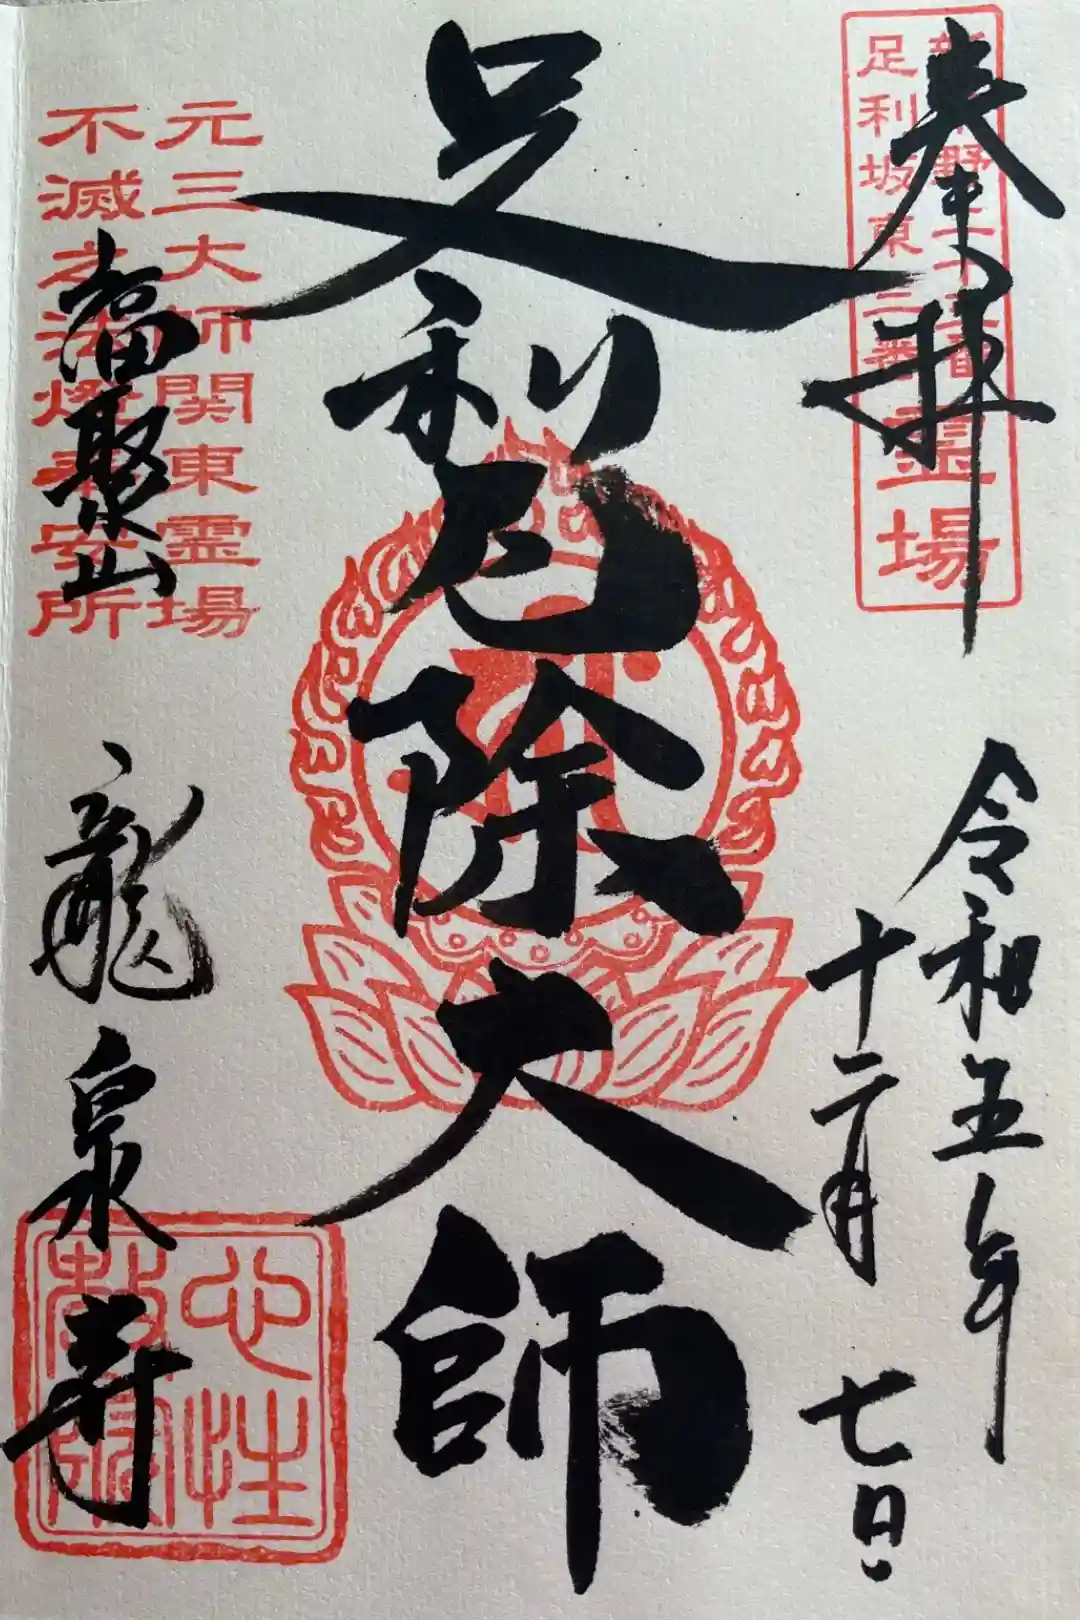 奉拝
足利坂東二番
霊場
令和五年
十二月七日
足利厄除大師
元三大師関東霊場
不滅之法燈奉安所
福聚山
龍泉寺
心性